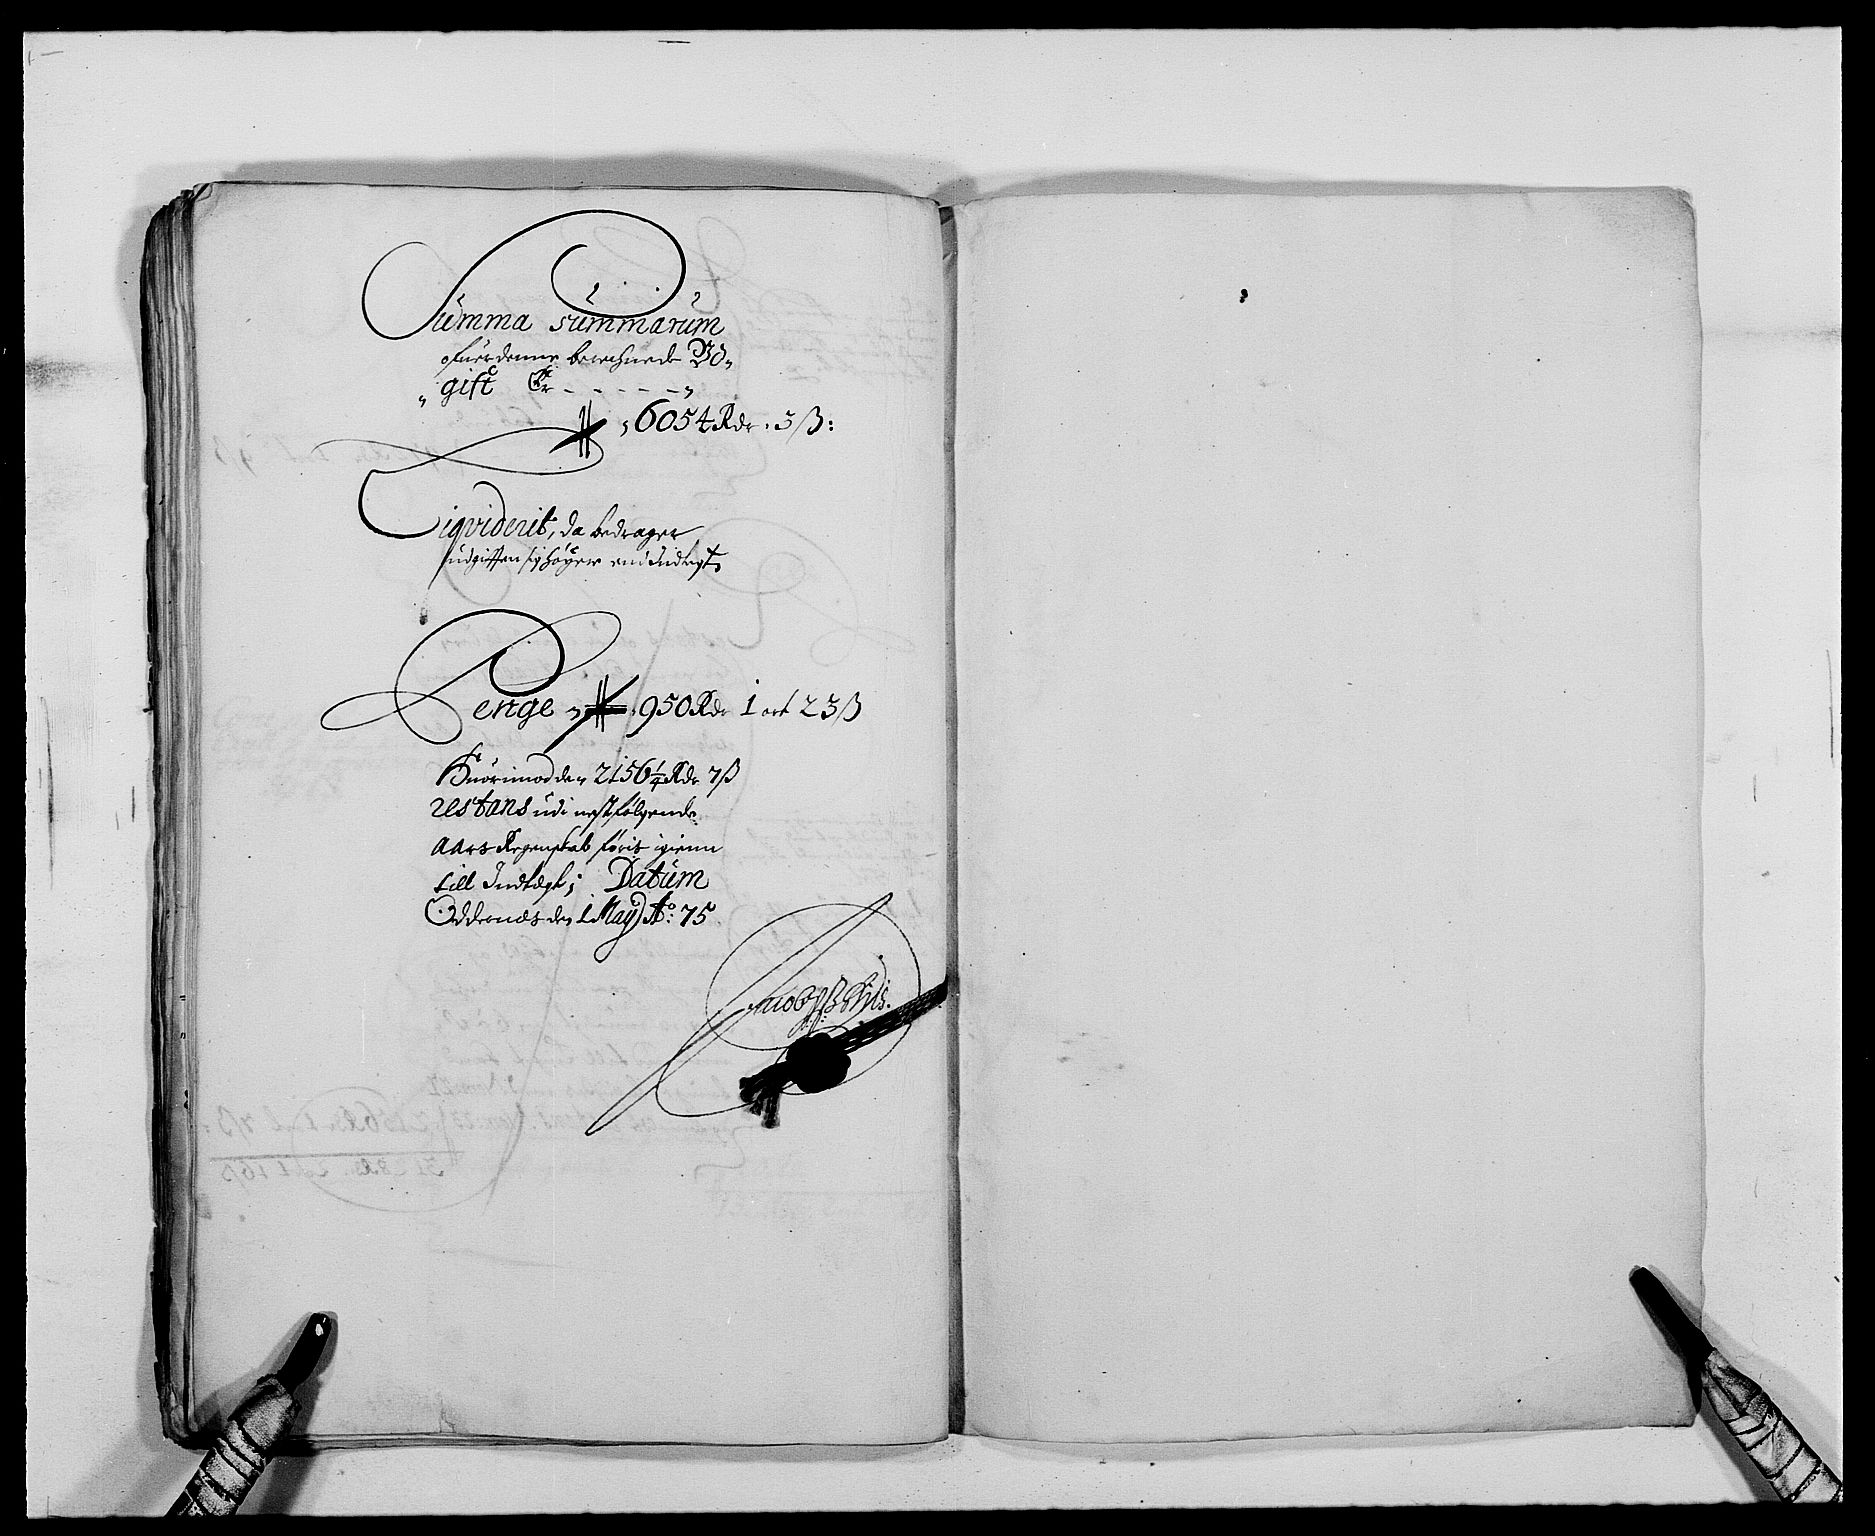 Summa summarum
ofuer denne beregnede Vd„
„gift Er - - - - - -„
6054 Rdr. 3 ß:
Liqviderit, da bedrager
udgiften sig höyere end Indtegt„
Penge 950 Rdr 1 ort 23 ß
Huorimod den 2156¼ Rdr 7 ß
restans udi nestfølgende
aars Regenskab føris igienn
till Indtegt; Datum
Oddernes den 1 Maÿ Ao: 75.